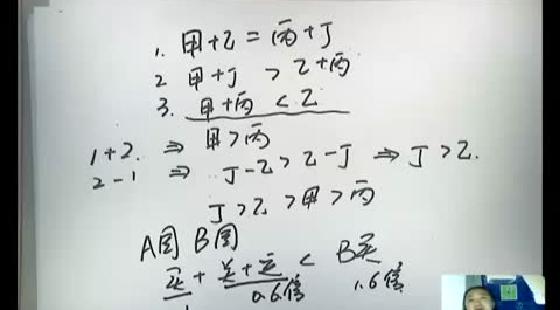 1. 甲+乙=丙+丁
2 甲+丁 > 乙+丙
3. 甲+丙 < 乙
1+2. ⇒ 甲>丙
2-1 ⇒ 丁-乙>乙-丁 ⇒ 丁>乙.
丁>乙>甲>丙
A国 B国
+ < B
0.6倍 1.6倍